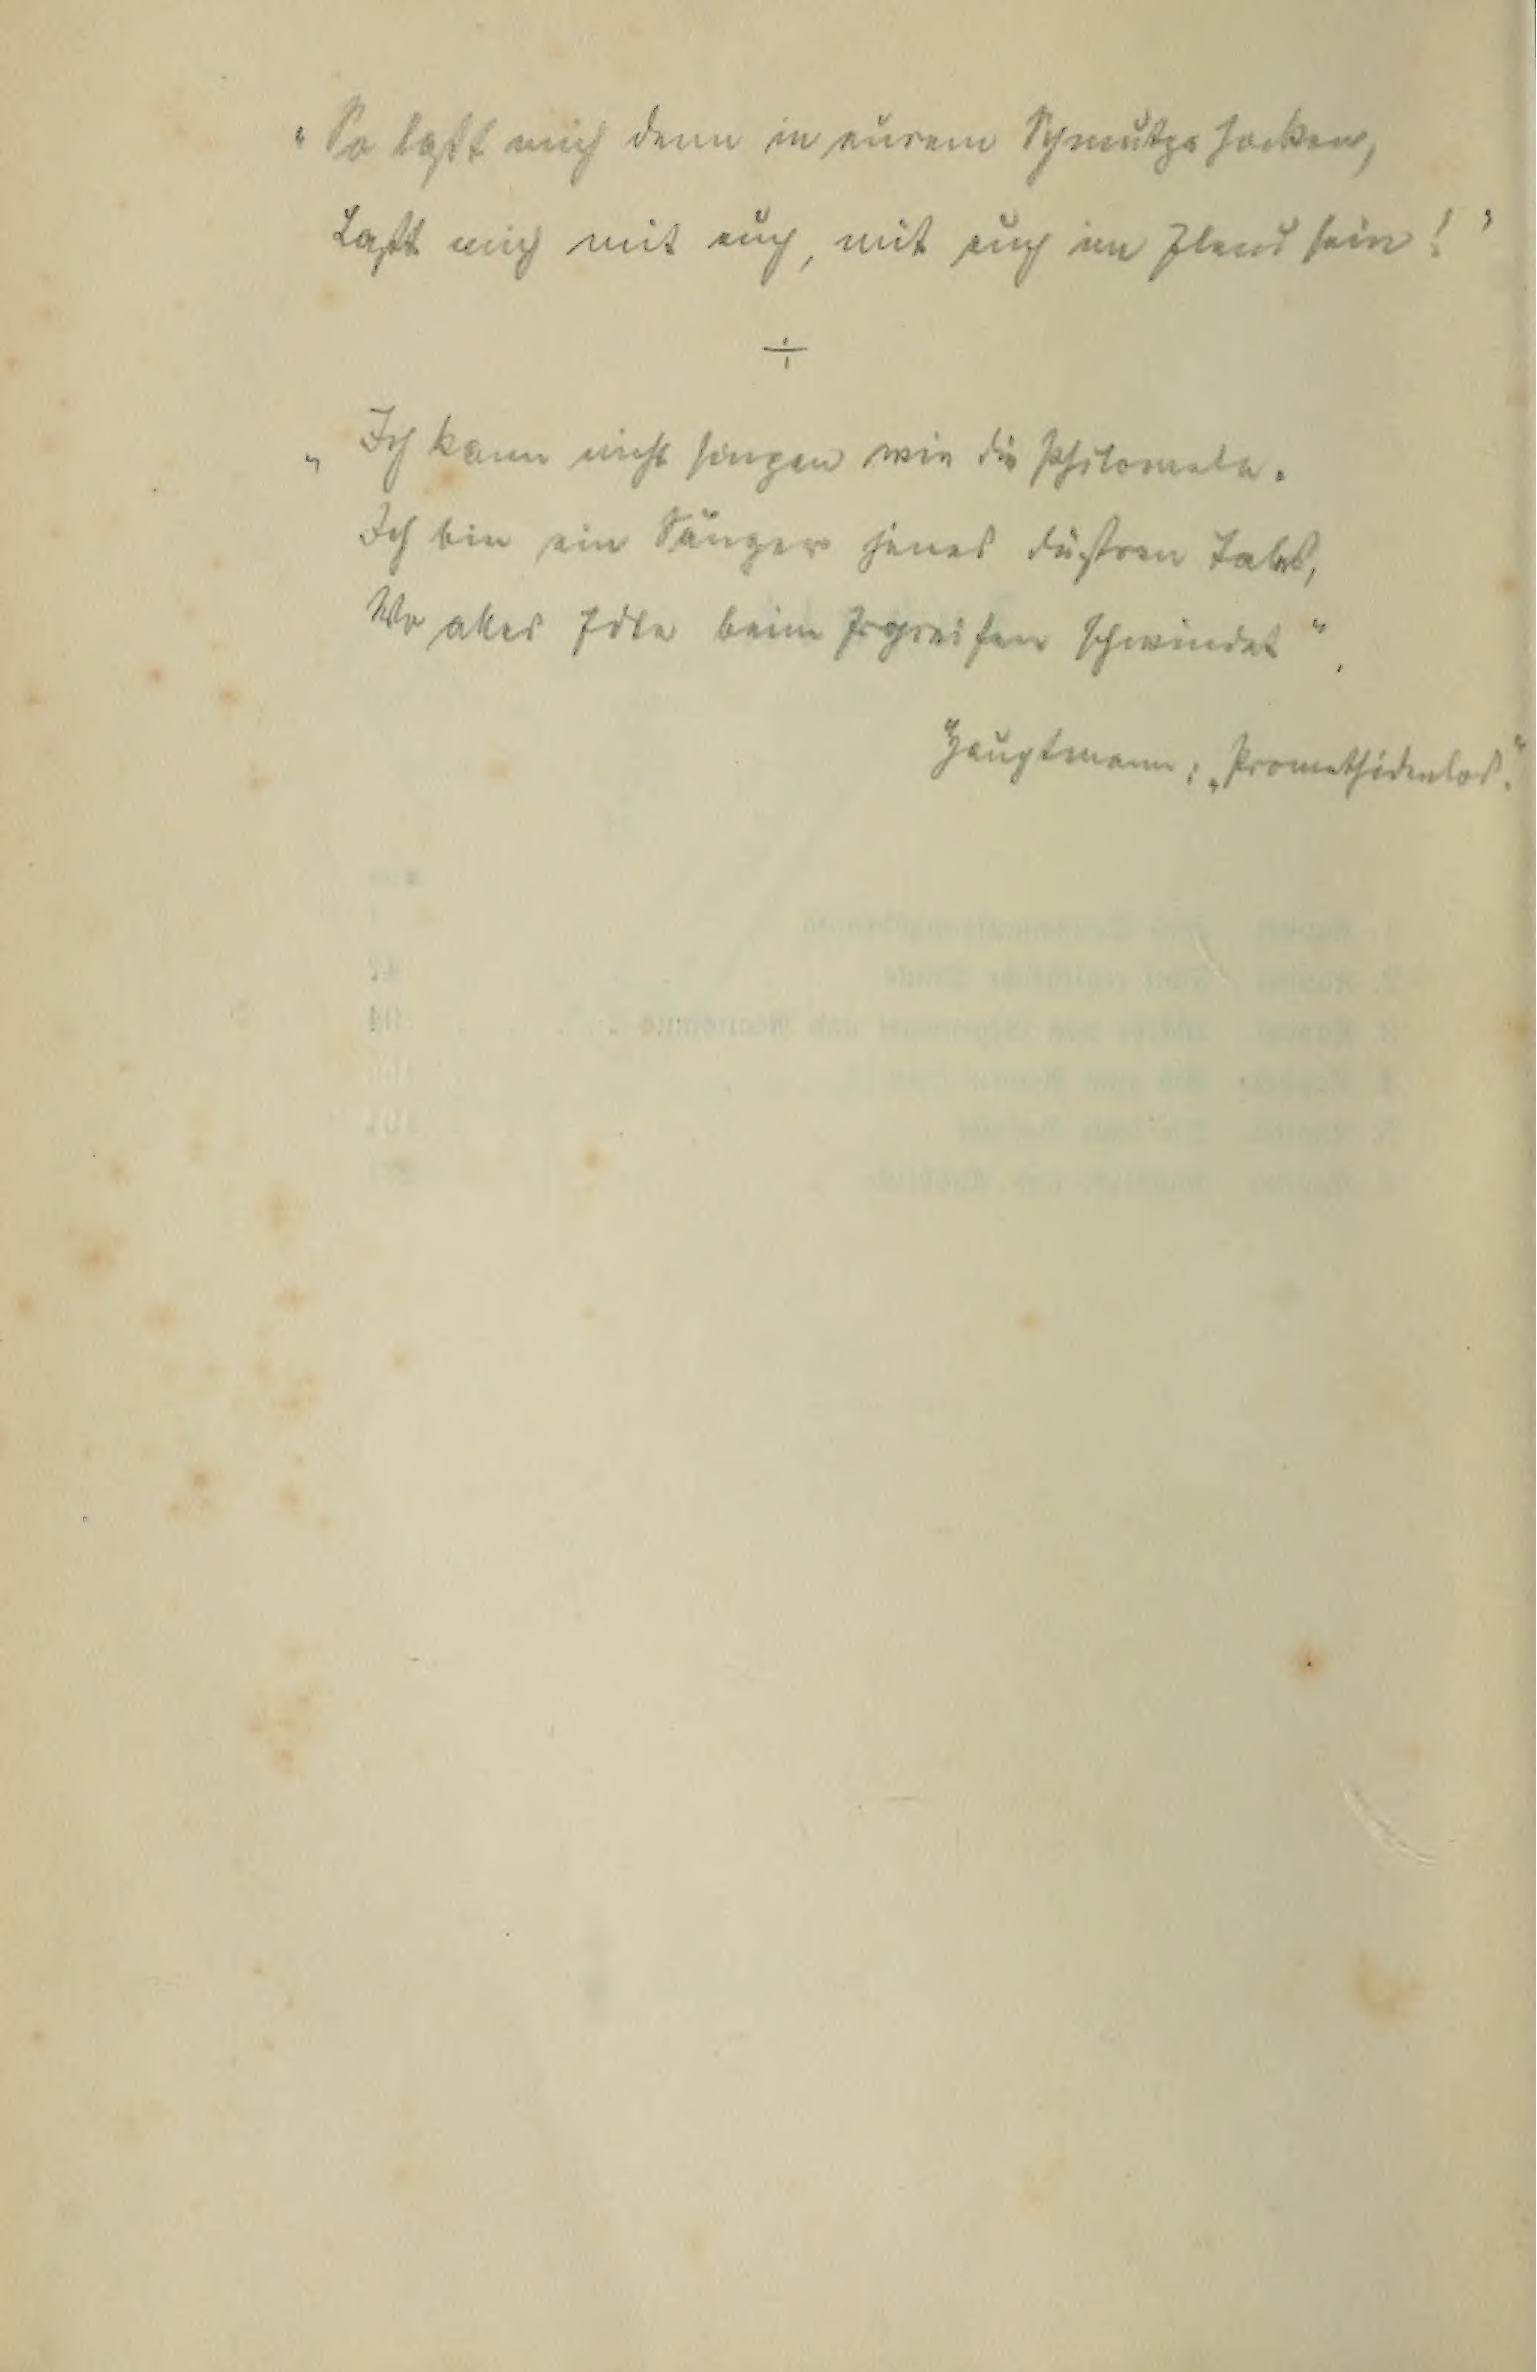 "So laßt mich denn in eurem Schmutze hocken,
Laßt mich mit euch, mit euch im Elend sein!"
÷
„Ich kann nicht singen wie die Philomele.
Ich bin ein Sänger jenes düstren Tales,
Wo alles Edle beim Ergreifen schwindet".
Hauptmann; „Promethidenlos."